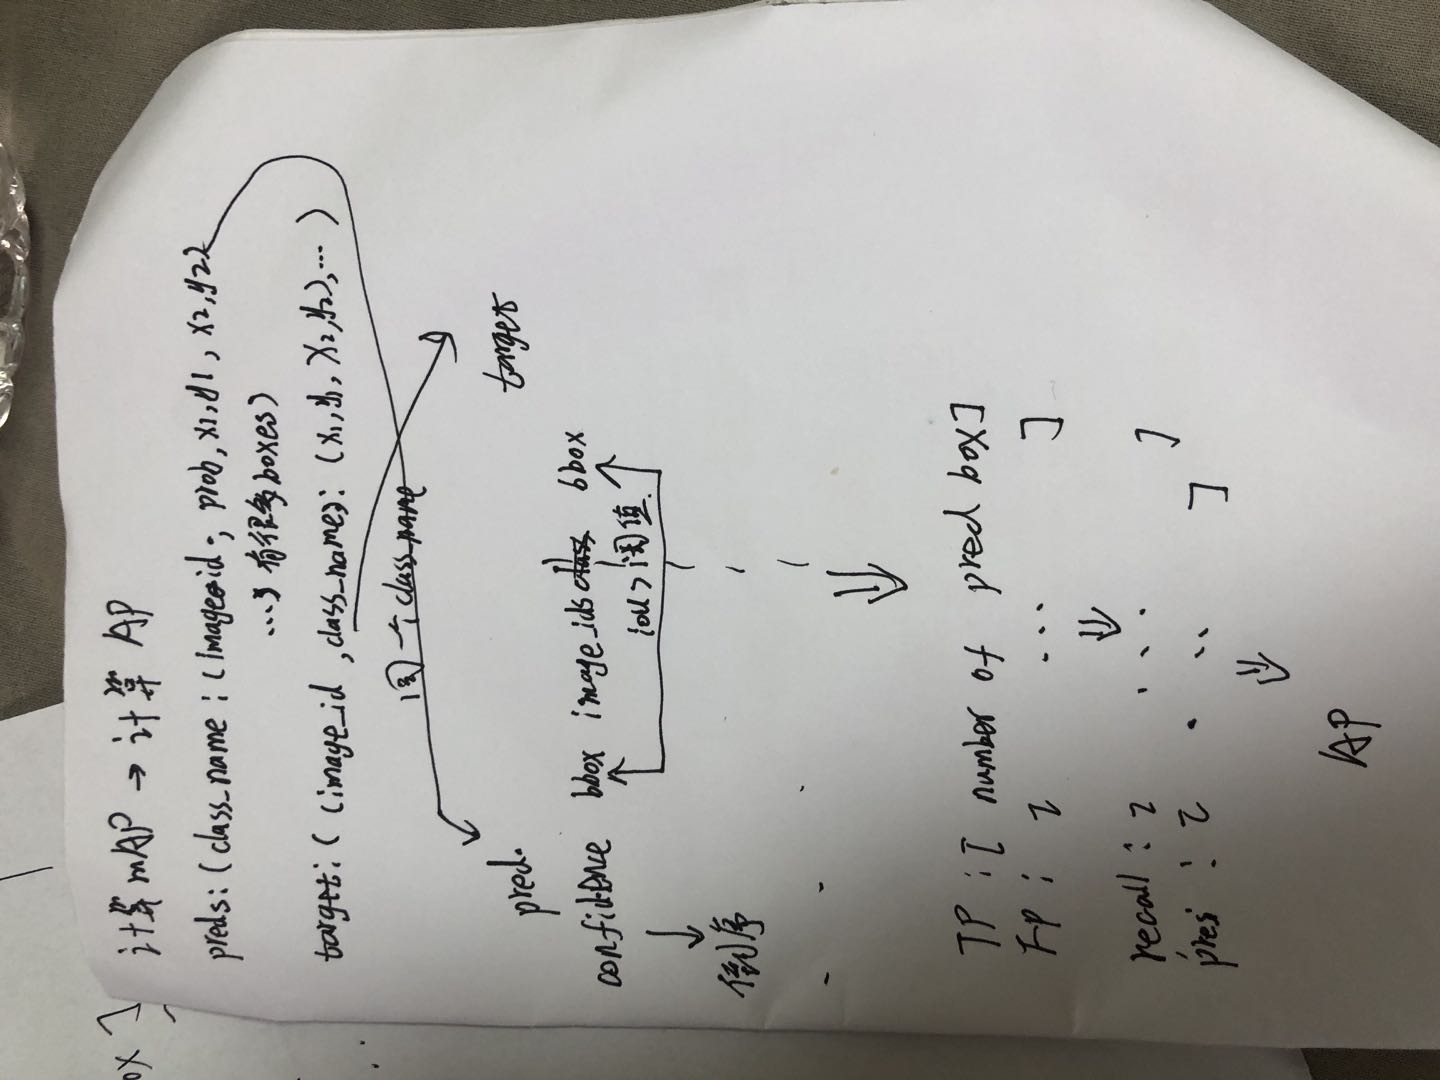 ox ]
计算mAP → 计算 AP
preds: (class_name : (image_id, prob, x1, y1, x2, y2)
...) 有很多boxes)
target: ((image_id, class_name): (x1, y1, x2, y2), ... )
同一个class_name
pred.
target
confidence bbox image_ids class bbox
iou > 阈值
倒序
TP : [ number of pred box]
FP : [ ... ]
recall : [ ... ]
presi : [ ... ]
AP